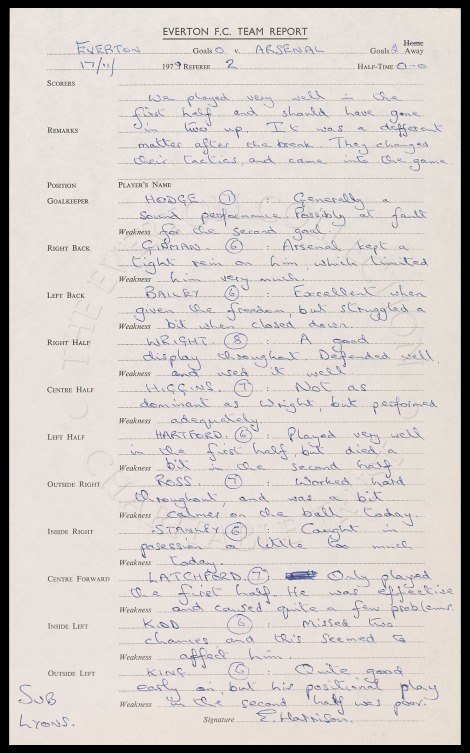 EVERTON F.C. TEAM REPORT
EVERTON Goals 0 v. ARSENAL Goals 2 Home Away
17/11/ 1979 REFEREE 2 HALF-TIME 0-0
SCORERS
We played very well in the
first half and should have gone
REMARKS in two up. It was a different
matter after the break. They changed
their tactics, and came into the game.
POSITION PLAYER'S NAME
GOALKEEPER HODGE. 7 : Generally a
sound performance. Possibly at fault
Weakness for the second goal.
RIGHT BACK GIDMAN. 6 : Arsenal kept a
tight rein on him, which limited
Weakness him very much.
LEFT BACK BAILEY 6 : Excellent when
given the freedom, but struggled a
Weakness bit when closed down.
RIGHT HALF WRIGHT. 8 : A good
display throughout. Defended well,
Weakness and used it well
CENTRE HALF HIGGINS. 7 : Not as
dominant as Wright, but performed
Weakness adequately
LEFT HALF HARTFORD. 6 : Played very well
in the first half, but died a
Weakness bit in the second half
OUTSIDE RIGHT ROSS. 7 : Worked hard
throughout and was a bit
Weakness calmer on the ball today.
INSIDE RIGHT STANLEY 6 : Caught in
posession a little too much
Weakness today.
CENTRE FORWARD LATCHFORD. 7 : Only played
the first half. He was effective
Weakness and caused quite a few problems.
INSIDE LEFT KIDD 6 : Missed two
chances and this seemed to
Weakness affect him.
OUTSIDE LEFT KING. 6 : Quite good
early on, but his positional play
Weakness in the second half was poor.
SUB
LYONS.
Signature E. Harrison.